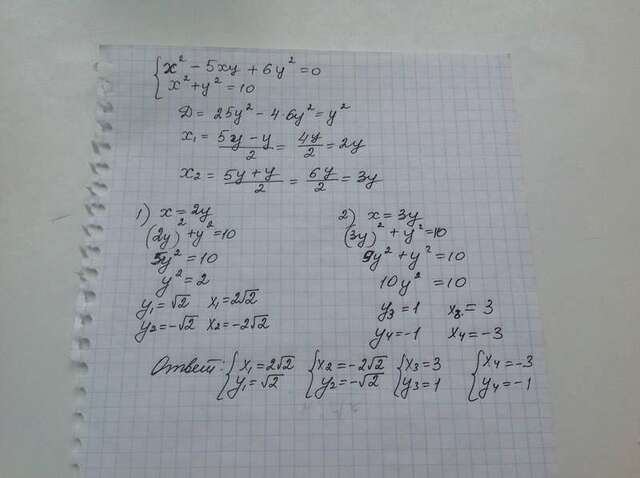 x² - 5xy + 6y² = 0
x² + y² = 10
Д = 25y² - 4·6y² = y²
x₁ = (5y - y)/2 = 4y/2 = 2y
x₂ = (5y + y)/2 = 6y/2 = 3y
1) x = 2y
(2y)² + y² = 10
5y² = 10
y² = 2
y₁ = √2 x₁ = 2√2
y₂ = -√2 x₂ = -2√2
2) x = 3y
(3y)² + y² = 10
9y² + y² = 10
10y² = 10
y₃ = 1 x₃ = 3
y₄ = -1 x₄ = -3
Ответ: { x₁ = 2√2 { x₂ = -2√2 { x₃ = 3 { x₄ = -3
y₁ = √2 y₂ = -√2 y₃ = 1 y₄ = -1